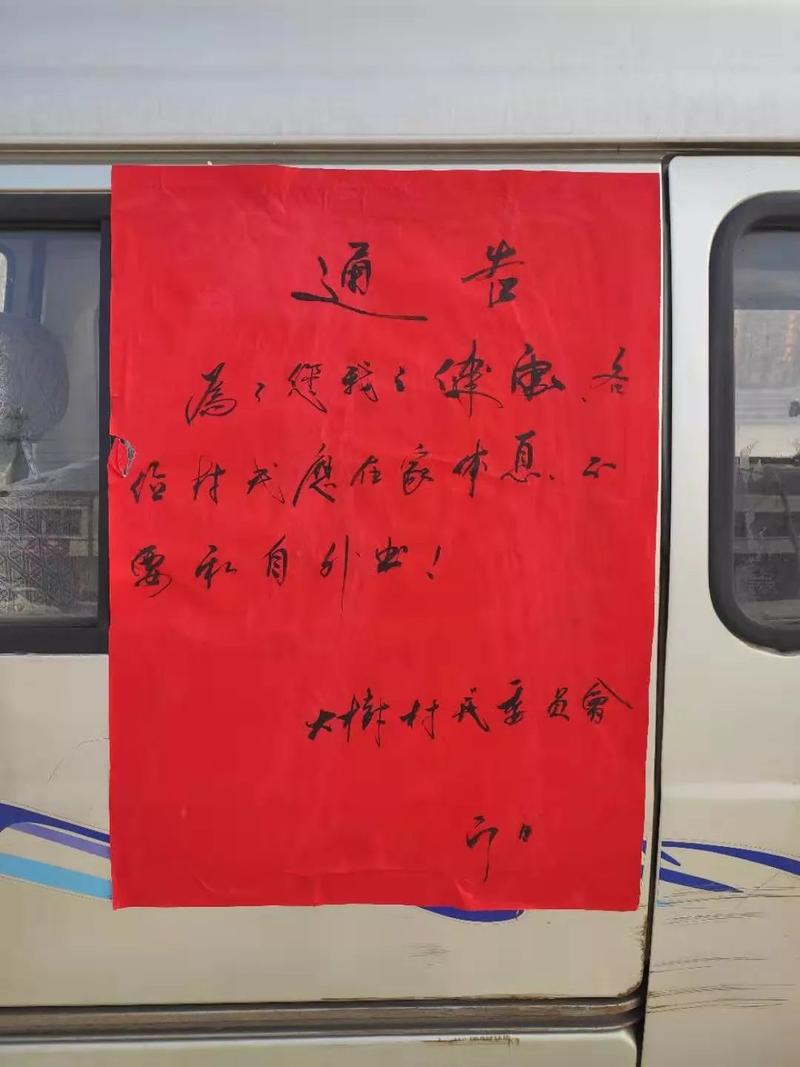 通告
為了您我之健康、各
位村民應在家休息、不
要私自外出！
大樹村民委員會
即日